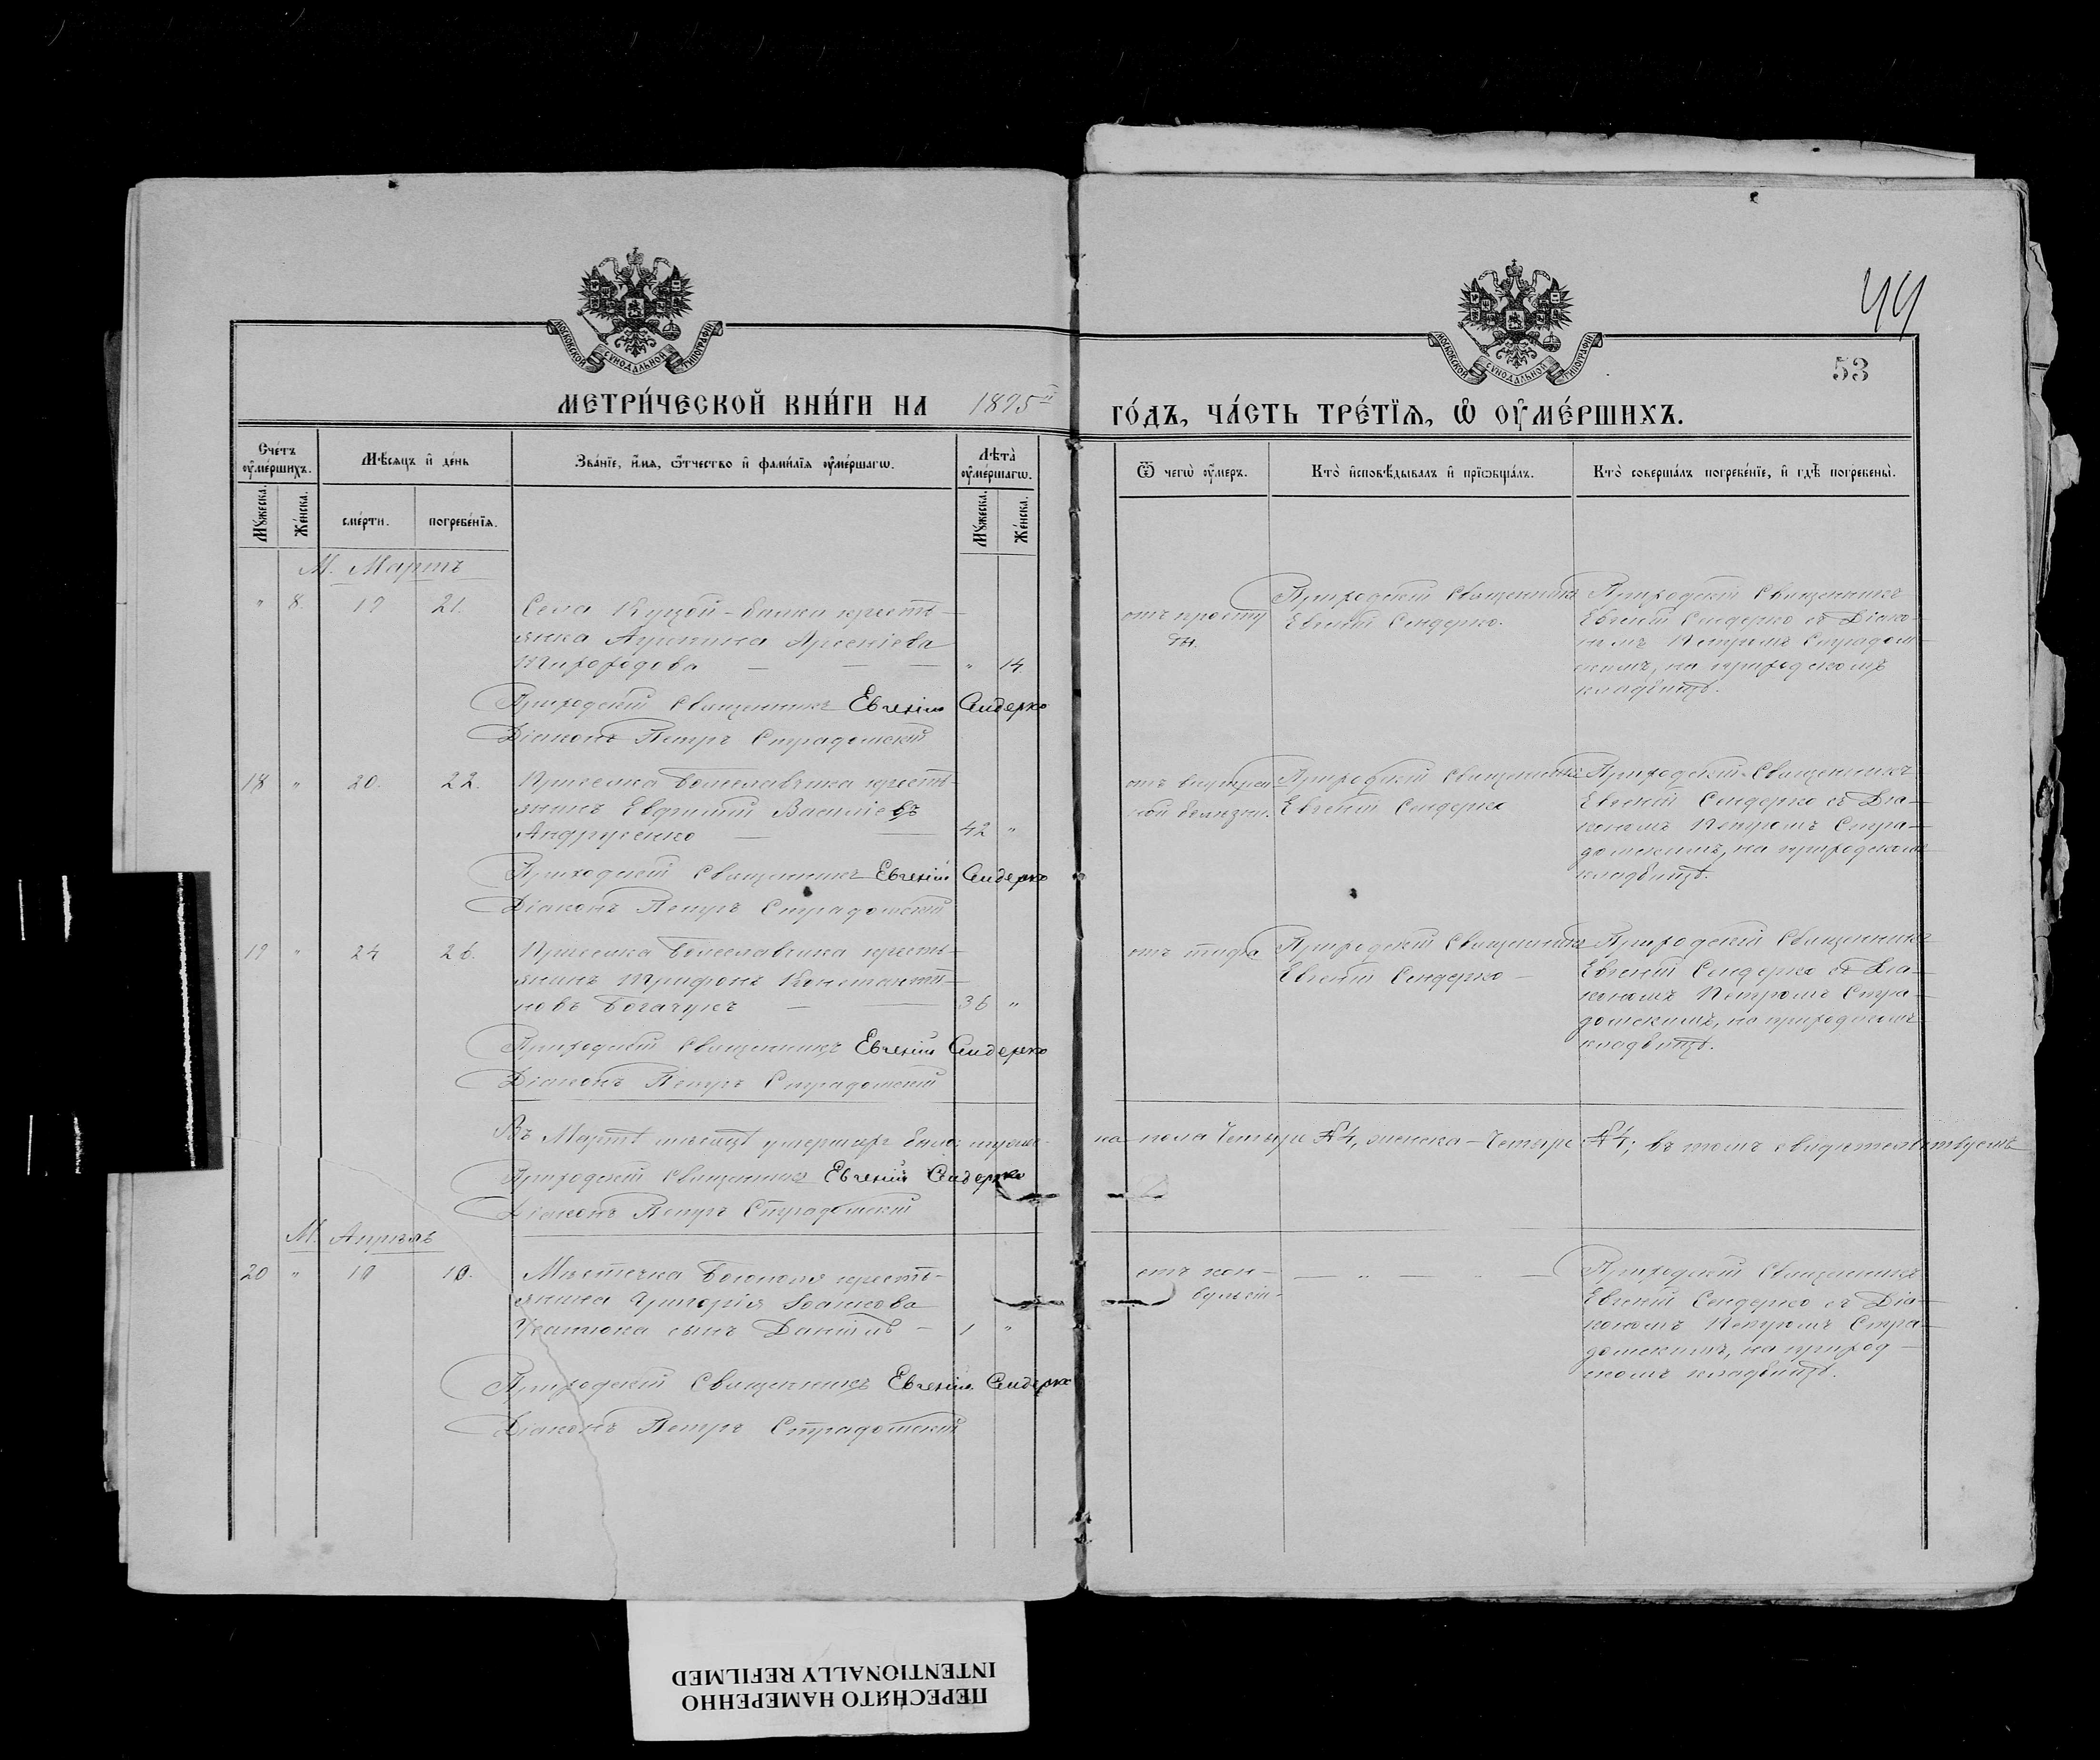 44
МОСКОВСКОЙ СѴНОДАЛЬНОЙ ТИПОГРАФІИ
МОСКОВСКОЙ СѴНОДАЛЬНОЙ ТИПОГРАФІИ
53
МЕТРИ́ЧЕСКОЙ КНИ́ГИ НА 1895й
ГО́ДЪ, ЧА́СТЬ ТРЕ́ТЇѦ, Ѡ҆ ОУ҆МЕ́РШИХЪ.
Сче́тъ оу҆ме́ршихъ.
Мꙋ́жеска.
Же́нска.
Мѣ́сѧцъ и҆ де́нь
сме́рти.
погребе́нїѧ.
Зва́нїе, и҆́мѧ, ѻ҆́тчество и҆ фами́лїѧ оу҆ме́ршагѡ.
Лѣ́та̀ оу҆ме́ршагѡ.
Мꙋ́жеска.
Же́нска.
Ѿ чегѡ̀ оу҆́меръ.
Кто̀ и҆сповѣ́дывалъ и҆ прїѡбща́лъ.
Кто̀ соверша́лъ погребе́нїе, и҆ гдѣ̀ погребены̀.
М. Мартъ
" 8. 19 21. Села Куцой-Балки кресть-
янка Агрипина Арсеніева
— — — " 14
Приходскій Священникъ Евгеній Сендерко
Діаконъ Петръ Страдомскій
отъ просту
ды.
Приходскій Священникъ
Евгеній Сендерко.
Приходскій Священникъ
Евгеній Сендерко съ Діако-
номъ Петромъ Страдом-
скимъ, на приходскомъ
кладбищѣ.
18 " 20. 22. Приселка Болеславчика кресть-
янинъ Евфимій Василіевъ
Андрусенко — — 42 "
Приходскій Священникъ Евгеній Сендерко
Діаконъ Петръ Страдомскій
отъ внутрен-
ной болезни.
Приходскій Священникъ
Евгеній Сендерко
Приходскій Священникъ
Евгеній Сендерко съ Діа-
кономъ Петромъ Стра-
домскимъ, на приходскомъ
кладбищѣ.
19 " 24 26. Приселка Болеславчика кресть-
янинъ Трифонъ Константи-
новъ Богачукъ — — 36 "
Приходскій Священникъ Евгеній Сендерко
Діаконъ Петръ Страдомскій
отъ тифа
Приходскій Священникъ
Евгеній Сендерко —
Приходскій Священникъ
Евгеній Сендерко съ Діа-
кономъ Петромъ Стра-
домскимъ, на приходскомъ
кладбищѣ.
Въ Мартѣ мѣсяцѣ умершихъ было: мужес-
ка пола Четыре №4, женска — Четыре №4; въ томъ свидетельствуемъ
Приходскій Священникъ Евгеній Сендерко
Діаконъ Петръ Страдомскій
М. Апрѣль
20 " 10. Мѣстечка Богополя кресть-
янина Григорія Іоаннова
сынъ Даніилъ — 1 "
Приходскій Священникъ Евгеній Сендерко
Діаконъ Петръ Страдомскій
отъ кон-
вульсій.
— " — — —
Приходскій Священникъ
Евгеній Сендерко съ Діа-
кономъ Петромъ Стра-
домскимъ, на приход-
скомъ кладбищѣ.
ПЕРЕСНЯТО НАМЕРЕННО
INTENTIONALLY REFILMED